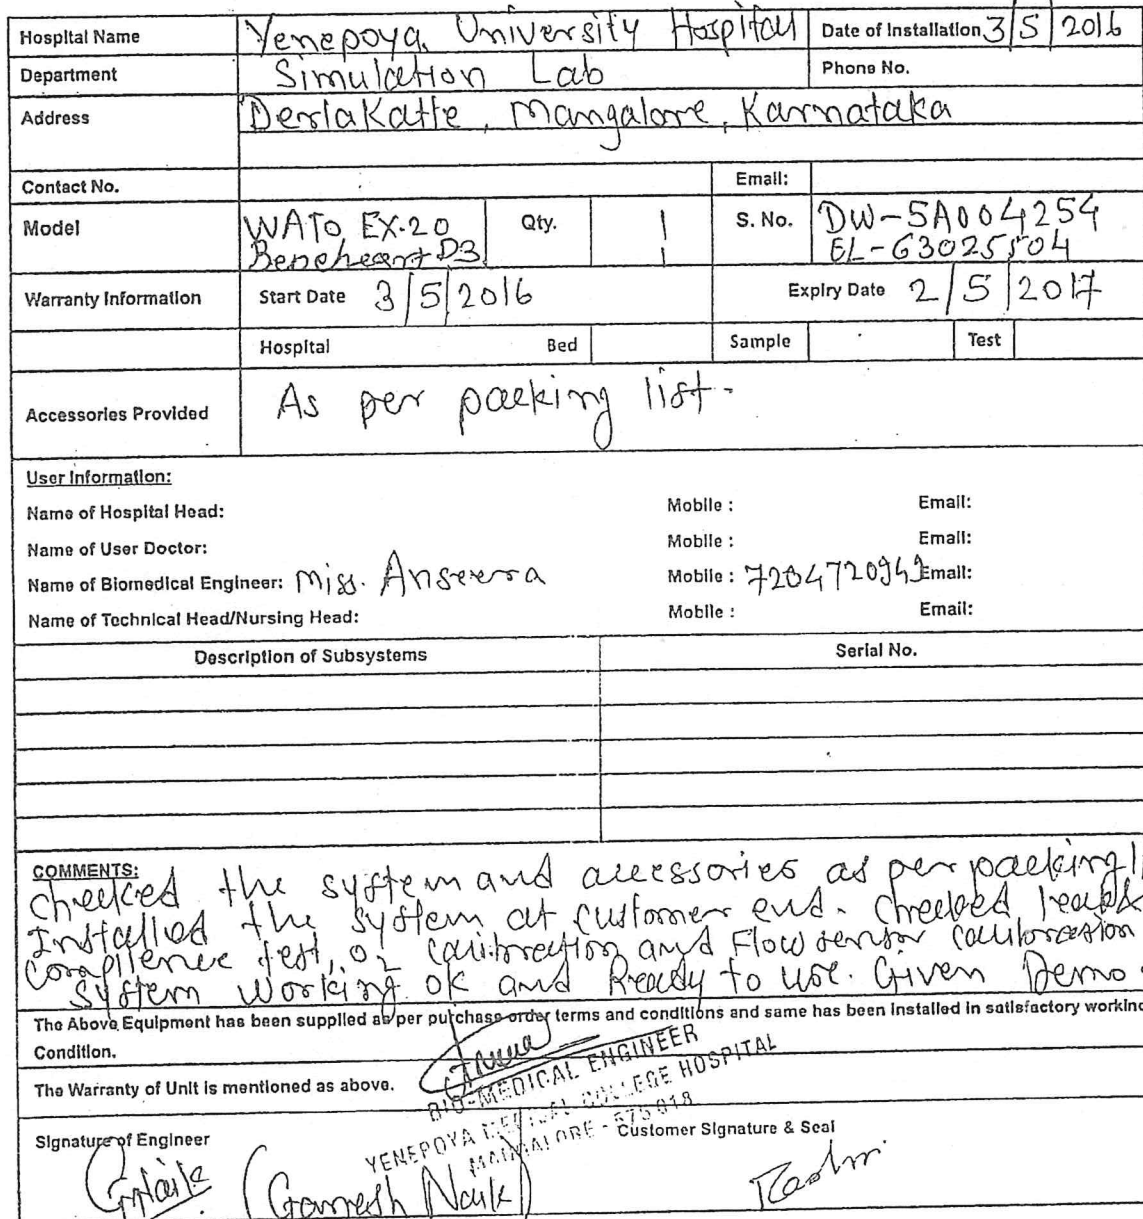 Hospital Name Yenepoya University Hospital Date of Installation 3/5/2016
Department Simulation Lab Phone No.
Address Derlakatte, Mangalore, Karnataka
Contact No. Email:
Model WATO EX-20 Qty. 1 S. No. DW-5A004254
Beneheart D3 1 EL-63025504
Warranty Information Start Date 3/5/2016 Expiry Date 2/5/2017
Hospital Bed Sample Test
Accessories Provided As per packing list-
User Information:
Name of Hospital Head: Mobile : Email:
Name of User Doctor: Mobile : Email:
Name of Biomedical Engineer: Miss. Anseera Mobile : 7204720949 Email:
Name of Technical Head/Nursing Head: Mobile : Email:
Description of Subsystems Serial No.
COMMENTS:
checked the system and accessories as per packing
Installed the system at customer end. checked leak &
complience test, O2 calibration and Flow sensor calibration
System working ok and Ready to use. Given Demo.
The Above Equipment has been supplied as per purchase order terms and conditions and same has been installed in satisfactory working
Condition.
BIO-MEDICAL ENGINEER
The Warranty of Unit is mentioned as above.
YENEPOYA MEDICAL COLLEGE HOSPITAL
MANGALORE - 575 018
Signature of Engineer Customer Signature & Seal
GNaik (Ganesh Naik)